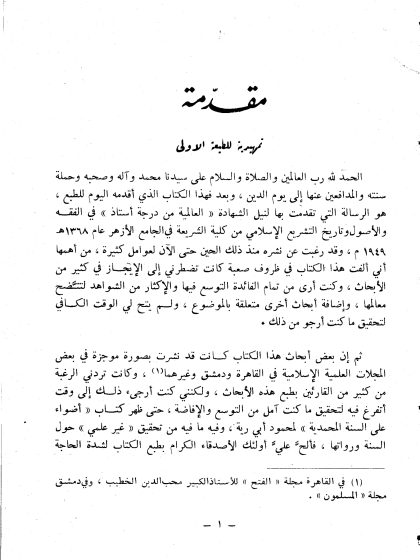 مقدّمة
تمهيدية للطبعة الاولى
الحمد لله رب العالمين والصلاة والسلام على سيدنا محمد وآله وصحبه وحملة
سنته والمدافعين عنها إلى يوم الدين ، وبعد فهذا الكتاب الذي أقدمه اليوم للطبع ،
هو الرسالة التي تقدمت بها لنيل الشهادة « العالمية من درجة أستاذ » في الفقه
والأصول وتاريخ التشريع الإسلامي من كلية الشريعة في الجامع الأزهر عام ١٣٦٨هـ
١٩٤٩ م ، وقد رغبت عن نشره منذ ذلك الحين حتى الآن لعوامل كثيرة ، من أهمها
أني ألفت هذا الكتاب في ظروف صعبة كانت تضطرني إلى الإيجاز في كثير من
الأبحاث ، وكنت أرى من تمام الفائدة التوسع فيها والإكثار من الشواهد لتتضح
معالمها ، وإضافة أبحاث أخرى متعلقة بالموضوع ، ولم يتح لي الوقت الكافي
لتحقيق ما كنت أرجو من ذلك .
ثم إن بعض أبحاث هذا الكتاب كانت قد نشرت بصورة موجزة في بعض
المجلات العلمية الإسلامية في القاهرة ودمشق وغيرهما(١) ، وكانت تردني الرغبة
من كثير من القارئين بطبع هذه الأبحاث ، ولكنني كنت أرجىء ذلك إلى وقت
أتفرغ فيه لتحقيق ما كنت آمل من التوسع والإفاضة ، حتى ظهر كتاب « أضواء
على السنة المحمدية » لمحمود أبي رية ، وفيه ما فيه من تحقيق « غير علمي » حول
السنة ورواتها ، فألح عليّ أولئك الأصدقاء الكرام بطبع الكتاب لشدة الحاجة
(١) في القاهرة مجلة « الفتح » للأستاذ الكبير محب الدين الخطيب ، وفي دمشق
مجلة « المسلمون » .
— ١ —